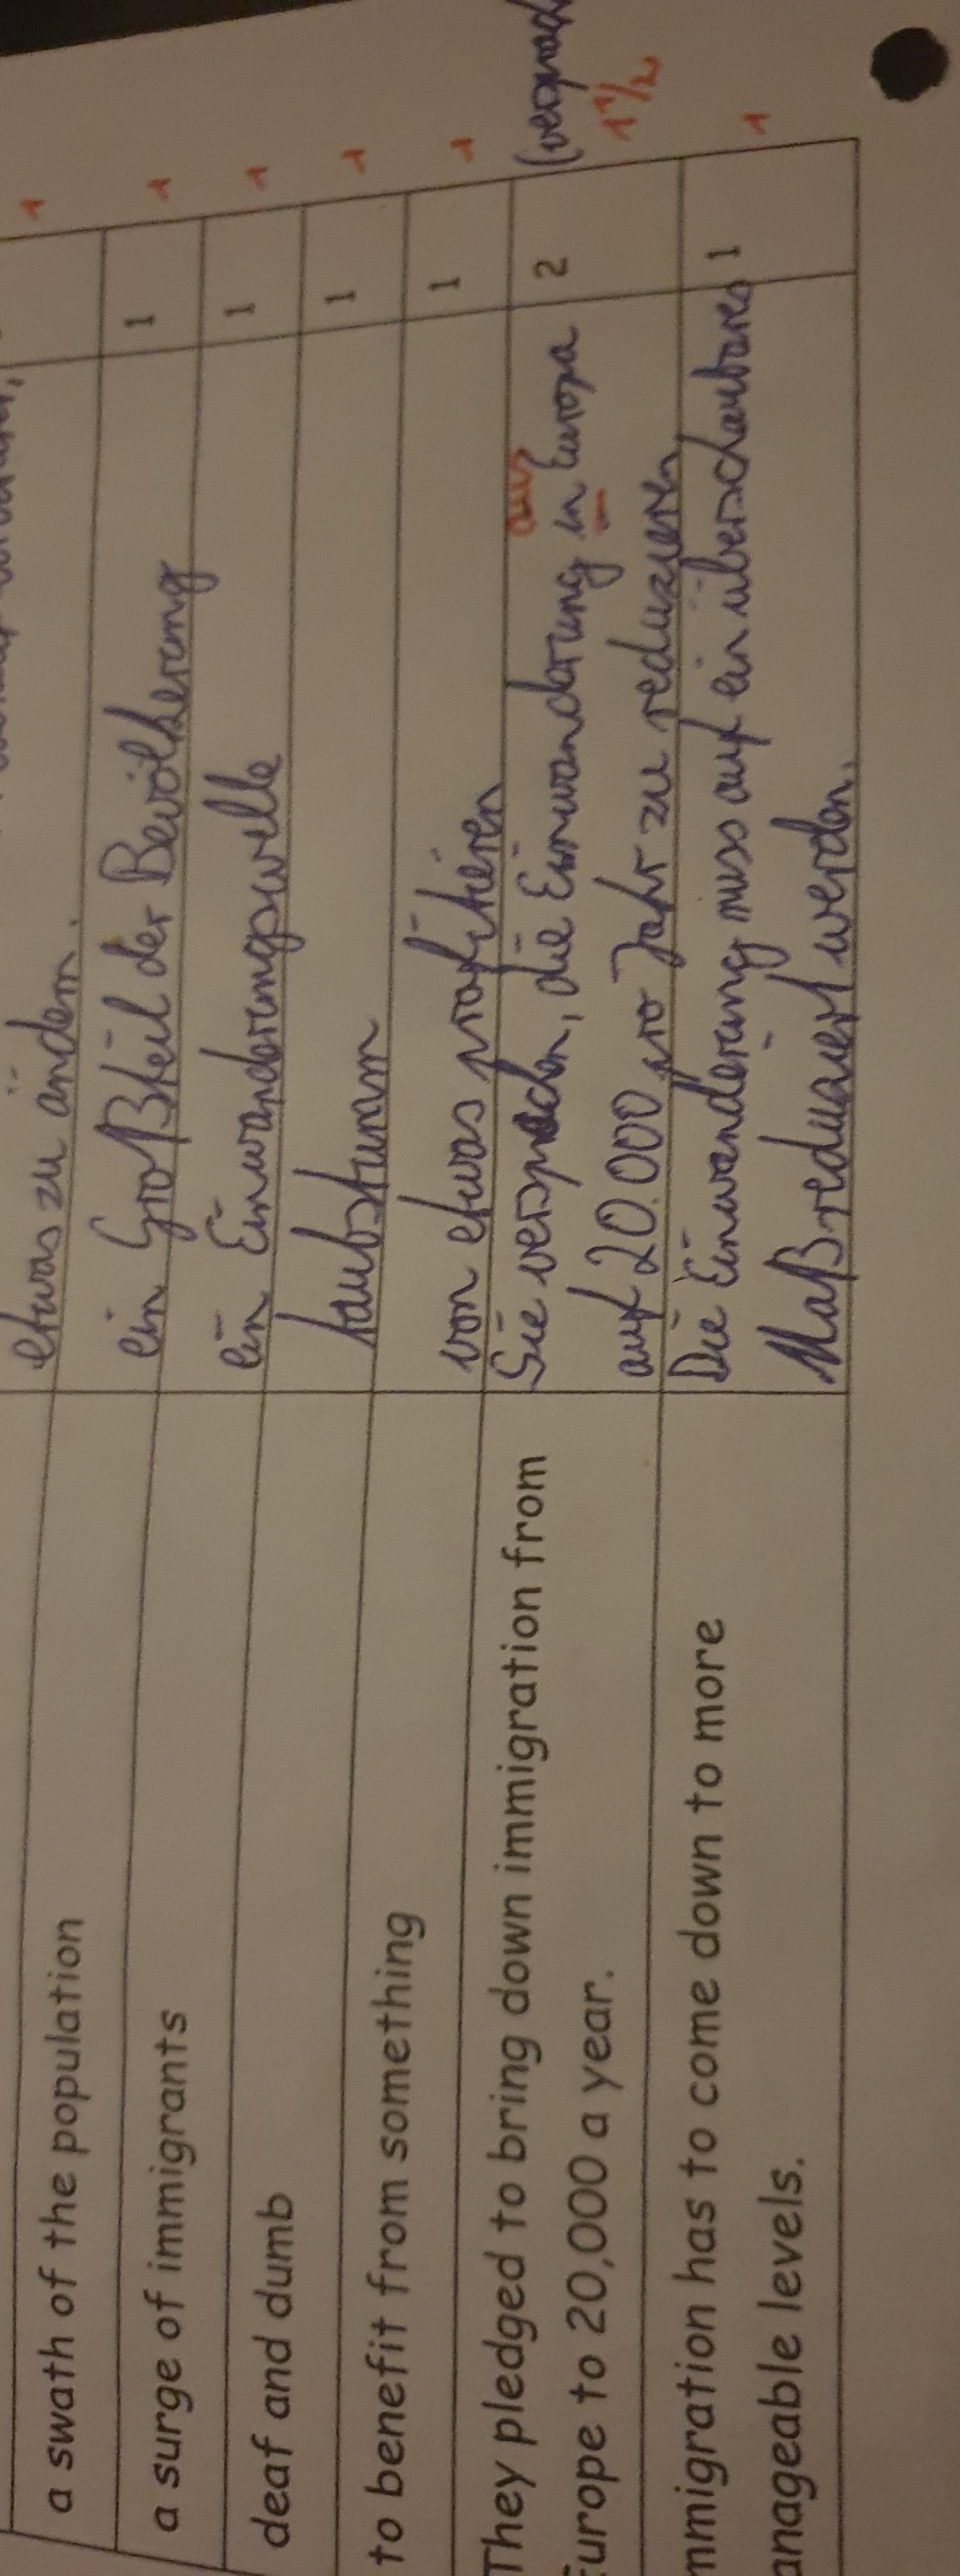 etwas zu ändern.
1
a swath of the population
ein Großteil der Bevölkerung
1
1
a surge of immigrants
ein Einwanderungswelle
1
1
deaf and dumb
taubstumm
1
1
to benefit from something
von etwas profitieren
1
1
They pledged to bring down immigration from
Europe to 20,000 a year.
aus
Sie versprachen, die Einwanderung in Europa
auf 20.000 pro Jahr zu reduzieren
2
1 1/2
mmigration has to come down to more
anageable levels.
Die Einwanderung muss auf ein überschaubares
Maß reduziert werden.
1
1